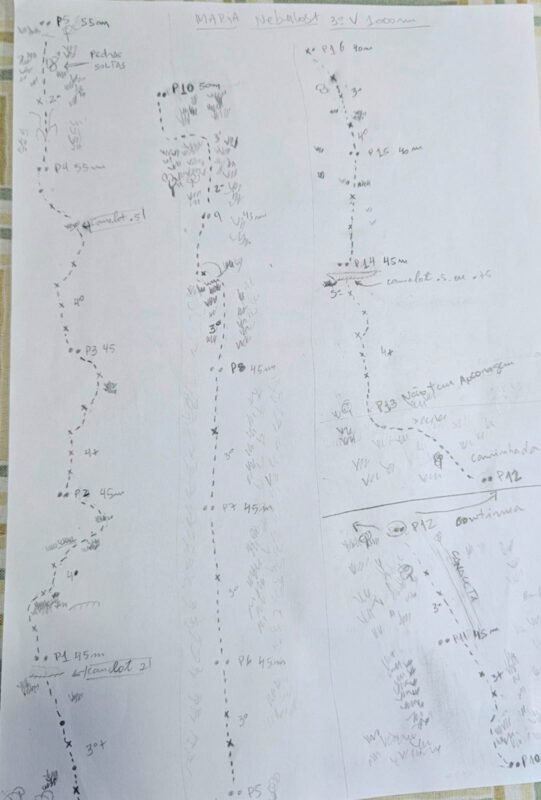 MARIA Nebulosa 3º V 1000m
P5 55m
PEDRAS
SOLTAS
2º
P4 55m
Camelot .5
4º
P3 45
4+
P2 45m
4º
P1 45m
Camelot 2
3º+
P10 50m
2º
9 45m
3º
P8 45m
3º
P7 45m
3º
P6 45m
3º
P5
P16 40m
3º
4º
P15 40m
P14 45m
5º
camelot .5 ou .75
4+
P13 Não tem Ancoragem
Caminhada
P12
continua
P12
CANALETA
3º
P11 45m
3+
P10